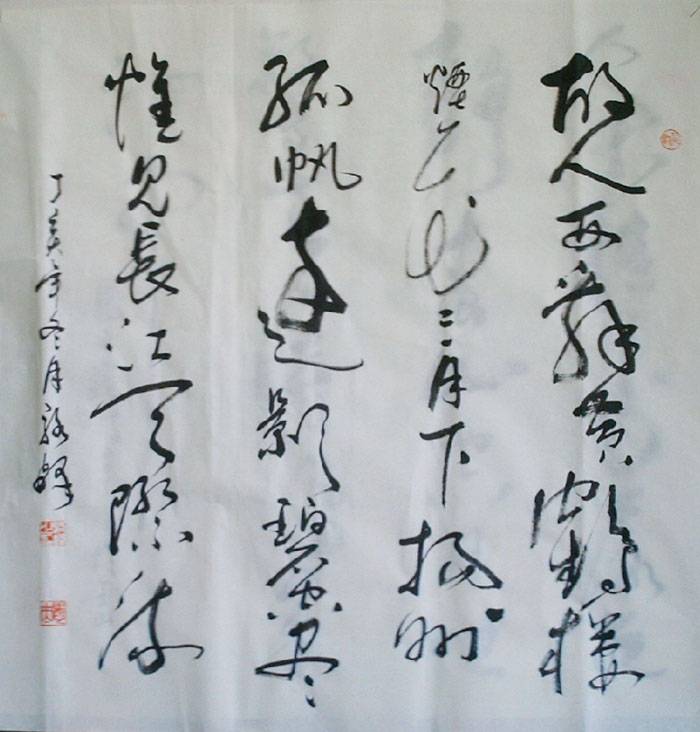 故人西辭黄鶴樓
煙花三月下揚州
孤帆遠影碧空尽
惟見長江天際流
丁亥年冬月